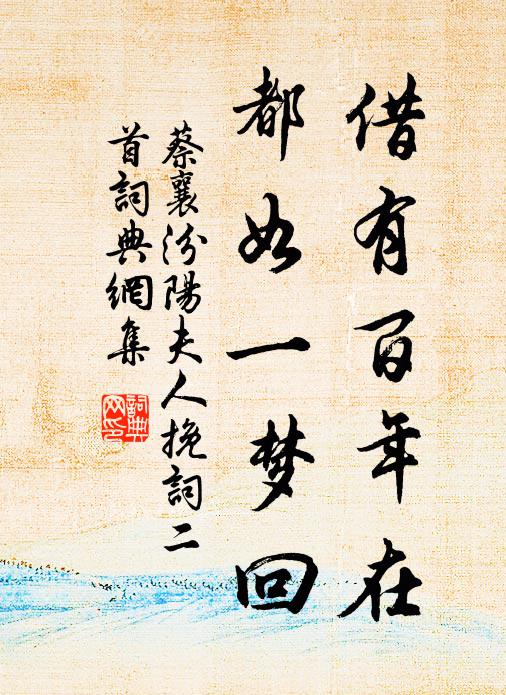 借有百年在
都如一梦回
蔡襄汾陽夫人挽詞二
首詞典網集
詞典
网印